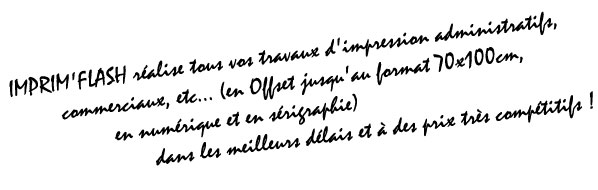 IMPRIM'FLASH réalise tous vos travaux d'impression administratifs,
commerciaux, etc... (en Offset jusqu'au format 70x100cm,
en numérique et en sérigraphie)
dans les meilleurs délais et à des prix très compétitifs !